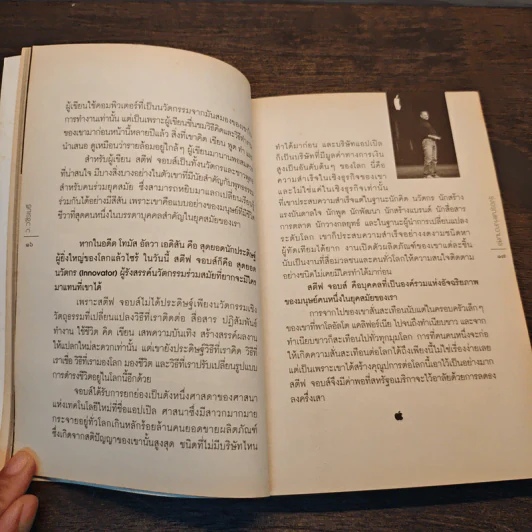 ผู้เขียนใช้คอมพิวเตอร์ที่เป็นนวัตกรรมจากมันสมองของเขา
การทำงานเท่านั้น แต่เป็นเพราะผู้เขียนชื่นชมวิธีคิดและวิธี
ของเขามาก่อนหน้านี้หลายปีแล้ว สิ่งที่เขาคิด เขียน พูด
นำเสนอ ดูเหมือนว่ารายล้อมอยู่ใกล้ๆ ผู้เขียนมานาน
สำหรับผู้เขียน สตีฟ จอบส์เป็นทั้งนวัตกรและชาว
ที่น่าสนใจ มีบางสิ่งบางอย่างในตัวเขาที่มีนัยสำคัญกับ
สำหรับคนร่วมยุคสมัย ซึ่งสามารถหยิบมาแลกเปลี่ยนเรียนรู้
ร่วมกันได้อย่างมีสีสัน เพราะเขาคือแบบอย่างของมนุษย์ที่มี
ชีวาที่สุดคนหนึ่งในบรรดาบุคคลสำคัญในยุคสมัยของเรา
หากในอดีต โทมัส อัลวา เอดิสัน คือ สุดยอดนักประดิษฐ์
ผู้ยิ่งใหญ่ของโลกแล้วไซร้ ในวันนี้ สตีฟ จอบส์ก็คือ สุดยอด
นวัตกร (Innovator) ผู้รังสรรค์นวัตกรรมร่วมสมัยที่ยากจะมีใคร
มาแทนที่เขาได้
เพราะสตีฟ จอบส์ไม่ได้ประดิษฐ์เพียงนวัตกรรมเชิง
วัตถุอรรถที่เปลี่ยนแปลงวิธีที่เราติดต่อ สื่อสาร ปฏิสัมพันธ์
ทำงาน ใช้ชีวิต คิด เขียน เสพความบันเทิง สร้างสรรค์ผลงาน
ให้แปลกใหม่สะดวกเท่านั้น แต่เขายังประดิษฐ์วิธีที่เราคิด วิธีที่
เราเชื่อ วิธีที่เรามองโลก มองชีวิต และวิธีที่เราปรับเปลี่ยนรูปแบบ
การดำรงชีวิตอยู่ในโลกนี้อีกด้วย
จอบส์ได้รับการยกย่องเป็นดังหนึ่งศาสดาของศาสนา
แห่งเทคโนโลยีใหม่ที่ชื่อแอปเปิล ศาสนาซึ่งมีสาวกมากมาย
กระจายอยู่ทั่วโลกเกินหลักร้อยล้านคนยอดขายผลิตภัณฑ์
ซึ่งเกิดจากสติปัญญาของเขานั้นสูงสุด ชนิดที่ไม่มีบริษัทไหน
ทำได้มาก่อน และบริษัทแอปเปิล
ก็เป็นบริษัทที่มีมูลค่าทางการเงิน
สูงเป็นอันดับต้นๆ ของโลก นี่คือ
ความสำเร็จในเชิงธุรกิจของเขา
และไม่ใช่แค่ในเชิงธุรกิจเท่านั้น
ที่เขาประสบความสำเร็จในฐานะนักคิด นวัตกร นักสร้าง
แรงบันดาลใจ นักพูด นักพัฒนา นักสร้างแบรนด์ นักสื่อสาร
การตลาด นักวางกลยุทธ์ และในฐานะผู้นำการเปลี่ยนแปลง
ระดับโลก เขาก็ประสบความสำเร็จอย่างงดงามชนิดหา
ผู้ทัดเทียมได้ยาก งานเปิดตัวผลิตภัณฑ์ของเขาแต่ละชิ้น
นับเป็นงานที่สื่อมวลชนและคนทั่วโลกให้ความสนใจติดตาม
อย่างชนิดไม่เคยมีใครทำได้มาก่อน
สตีฟ จอบส์ คือบุคคลที่เป็นองค์รวมแห่งอัจฉริยภาพ
ของมนุษย์คนหนึ่งในยุคสมัยของเรา
การจากไปของเขาสั่นสะเทือนนับแต่ในครอบครัวเล็กๆ
ของเขาที่พาโลอัลโต แคลิฟอร์เนีย ไปจนถึงทำเนียบขาว และจาก
ทำเนียบขาวก็สะเทือนไปทั่วทุกมุมโลก การที่คนคนหนึ่งจะก่อ
ให้เกิดความสั่นสะเทือนต่อโลกได้ถึงเพียงนี้ไม่ใช่เรื่องง่ายเลย
แต่เป็นเพราะเขาได้สร้างคุณูปการต่อโลกนี้เอาไว้เป็นอย่างมาก
สตีฟ จอบส์จึงมีค่าพอที่สหรัฐอเมริกาจะไว้อาลัยด้วยการลดธง
ลงครึ่งเสา